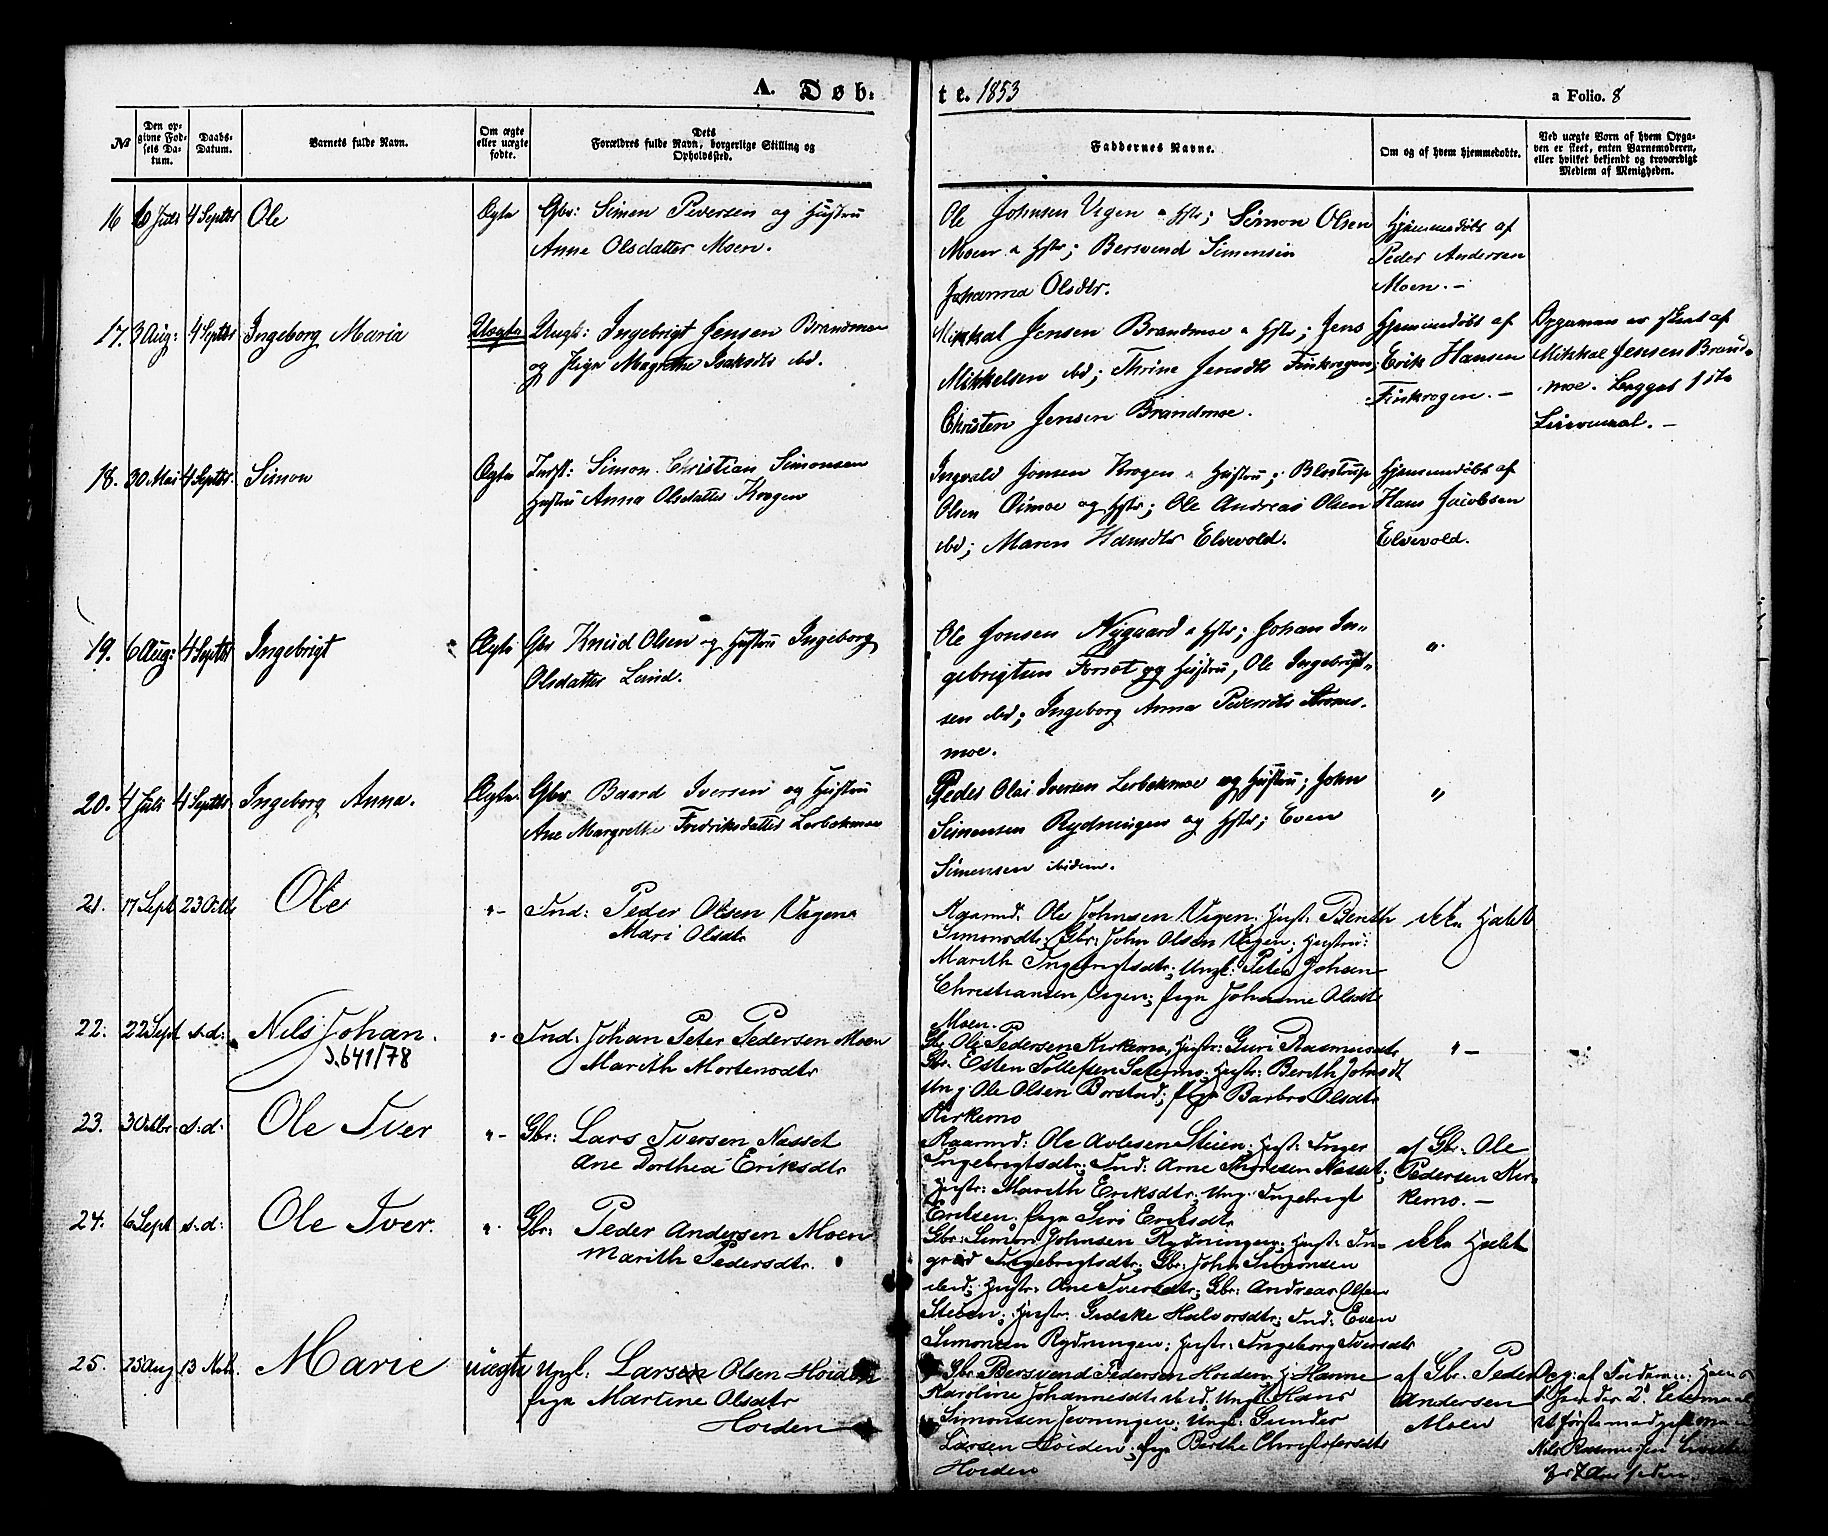 A. Døb-
te. 1853
a Folio. 8
№
Den op-
givne Fød-
sels Da-
tum.
Daabs-
Datum.
Barnets fulde Navn.
Om ægte
eller uægte
fødte.
Dets
Forældres fulde Navn, borgerlige Stilling og
Opholdssted.
Faddernes Navne.
Om og af hvem hjemmedøbt.
Ved uægte Børn af hvem Opga-
ven er skeet, enten Barnemoderen,
eller hvilket bekjendt og troværdigt
Medlem af Menigheden.
16 6 Juli 4 Septbr Ole Ægte Gbr: Simon Pedersen og Hustru
Anne Olsdatter Moen.
Ole Johnsen Vegen & Hstr; Simon Olsen
Moen & Hstr; Bersvend Simonsen
Johanna Olsdtr.
Hjemmedøbt af
Peder Andersen
Moen. —
17. 3 Aug: 4 Septbr Ingeborg Maria Uægte Ungk: Ingebrigt Jensen Brandmoe
og Pige Magrethe Isaksdtr ibd.
Mikkal Jensen Brandmoe & Hstr; Jens
Mikkelsen ibd; Thrine Jensdtr Finkrogen;
Christen Jensen Brandmoe.
Hjemmedøbt af
Erik Hansen
Finkrogen. —
Opgaven er skeet af
Mikkal Jensen Brand-
moe. Begges 1ste
Leiermaal. —
18. 30 Mai 4 Septbr. Simon Ægte Indst: Simon Christian Simonsen
Hustru Anna Olsdatter Krogen
Ingvald Jonsen Krogen & Hustru;
Olsen Øimoe og Hstr; Ole Andreas Olsen
ibd; Maren Hansdtr Elvevold.
Hjemmedøbt af
Hans Jacobsen
Elvevold.
19. 6 Aug: 4 Septbr Ingebrigt Ægte Gbr Knud Olsen og Hustru Ingeborg
Olsdatter Lund.
Ole Jonsen Nygaard & Hstr; Johan In-
gebrigtsen Forsøt og Hustru, Ole Ingebrigt-
sen ibd; Ingeborg Anna Pedersdtr Strøms-
moe.
"
20. 4 Juli 4 Septbr Ingeborg Anna. Ægte. Gbr Baard Iversen og Hustru
Ane Margrethe Fredriksdatter Lerbekmoe
Peder Olai Iversen Lerbekmoe og Hustru; John
Simonsen Rydningen og Hstr; Even
Simonsen ibidem.
"
21. 17 Sept 23 Octbr Ole "- Ind: Peder Olsen Vegen
Mari Olsdtr
Kaarmd. Ole Johnsen Vegen. Hust: Berith
Simonsdtr. Gbr: John Olsen Vegen; Hustru:
Marith Ingebrigtsdtr; Ungk: Peter Johan
Christiansen Vegen; Pige Johanne Olsdtr
Moen.
ikke Hjdbt
22. 22 Sept s.d: Nils Johan. "- Ind: Johan Peter Pedersen Moen
J.641/78
Marith Mortensdtr
Gbr Ole Pedersen Kirkemo, Hustr: Guri Rasmusdtr
Gbr. Esten Tollefsen Sætermo; Hustr: Berith Johnsdt
Ung: Ole Olsen Borstad; Pige Barbro Olsdtr
Kirkemo
"-
23. 3 Octbr. s.d: Ole Iver "- Gbr: Lars Iversen Nesset
Ane Dorthea Eriksdtr
Kaarmd: Ole Avlesen Steien; Hust: Inger
Ingebrigtsdtr; Ind: Arne Thoresen Nesset;
Hustr: Marith Eriksdtr; Ung: Ingebrigt
Eriksen, Pige Siri Eriksdtr
af Gbr: Ole
Pedersen Kir-
kemo. —
24. 6 Sept s.d: Ole Iver. " Gbr: Peder Andersen Moen
Marith Pedersdtr.
Gbr: Simon Johnsen Rydningen; Hust: In-
grid Ingebrigtsdtr; Gbr: John Simonsen
ibid; Hustr: Ane Iversdtr; Gbr: Andreas Olsen
Steien; Hustr: Gidske Halvorsdtr; Ind: Even
Simonsen Rydningen; Hustr: Ingeborg Iversdtr
ikke Hjdbt
25. 25 Aug 13 Novb. Marie uægte Ungk: Larsen Olsen Hoiden
Pige Martine Olsdtr
Hoiden
Gbr Bersvend Pedersen Hoiden, H. Hanne
Karoline Johannesdtr ibid. Ungk Hans
Simonsen Jevningen; Ungk: Gunder
Larsen Hoiden; Pige Berthe Christofersdtr
Hoiden
af Gbr. Peder
Andersen
Moen
Opg: af Faderen;
2d Leiermaal
det første med gift
Nils Rasmussen